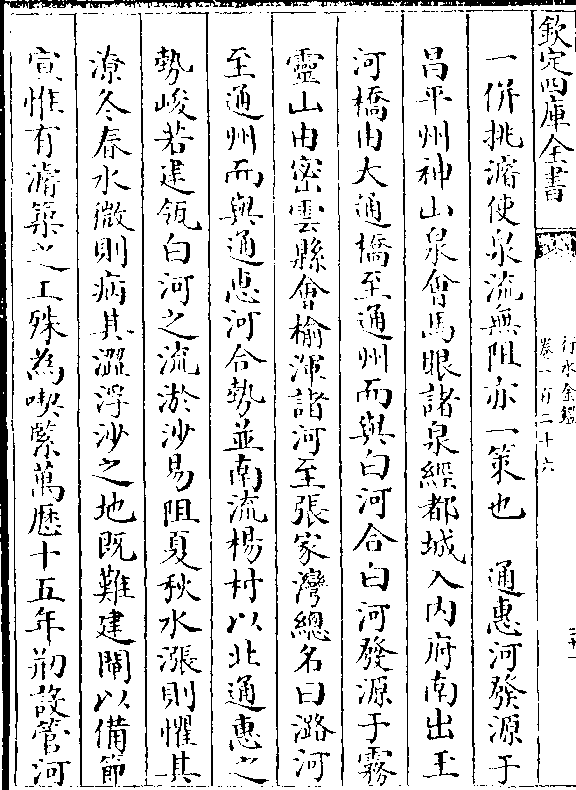 欽定四庫全書
行水金鑑
卷一百二十六
一併挑濬使泉流無阻亦一策也　通惠河發源于
昌平州神山泉會馬眼諸泉經都城入内府南出玉
河橋由大通橋至通州而與白河合白河發源于霧
靈山由密雲縣會榆渾諸河至張家灣總名曰潞河
至通州而與通惠河合勢並南流楊村以北通惠之
勢峻若建瓴白河之流淤沙易阻夏秋水漲則懼其
潦冬春水微則病其澀浮沙之地既難建閘以備節
宣惟有濬築之工殊為喫緊萬歴十五年剏設管河